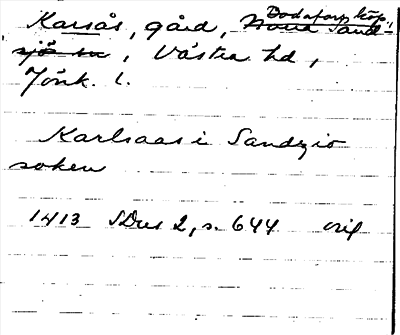 Karsås, gård, Bodafors köp.
Norra Sand-
sjö sn, Västra hd,
Jönk. l.
Karlsaas i Sandziö
soken
1413 SDns 2, s. 644 orig